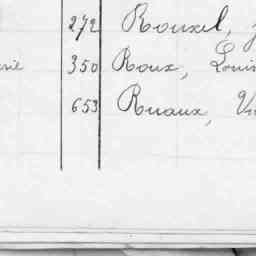 272 Rouxel,
350 Roux, Louis
653 Ruaux,